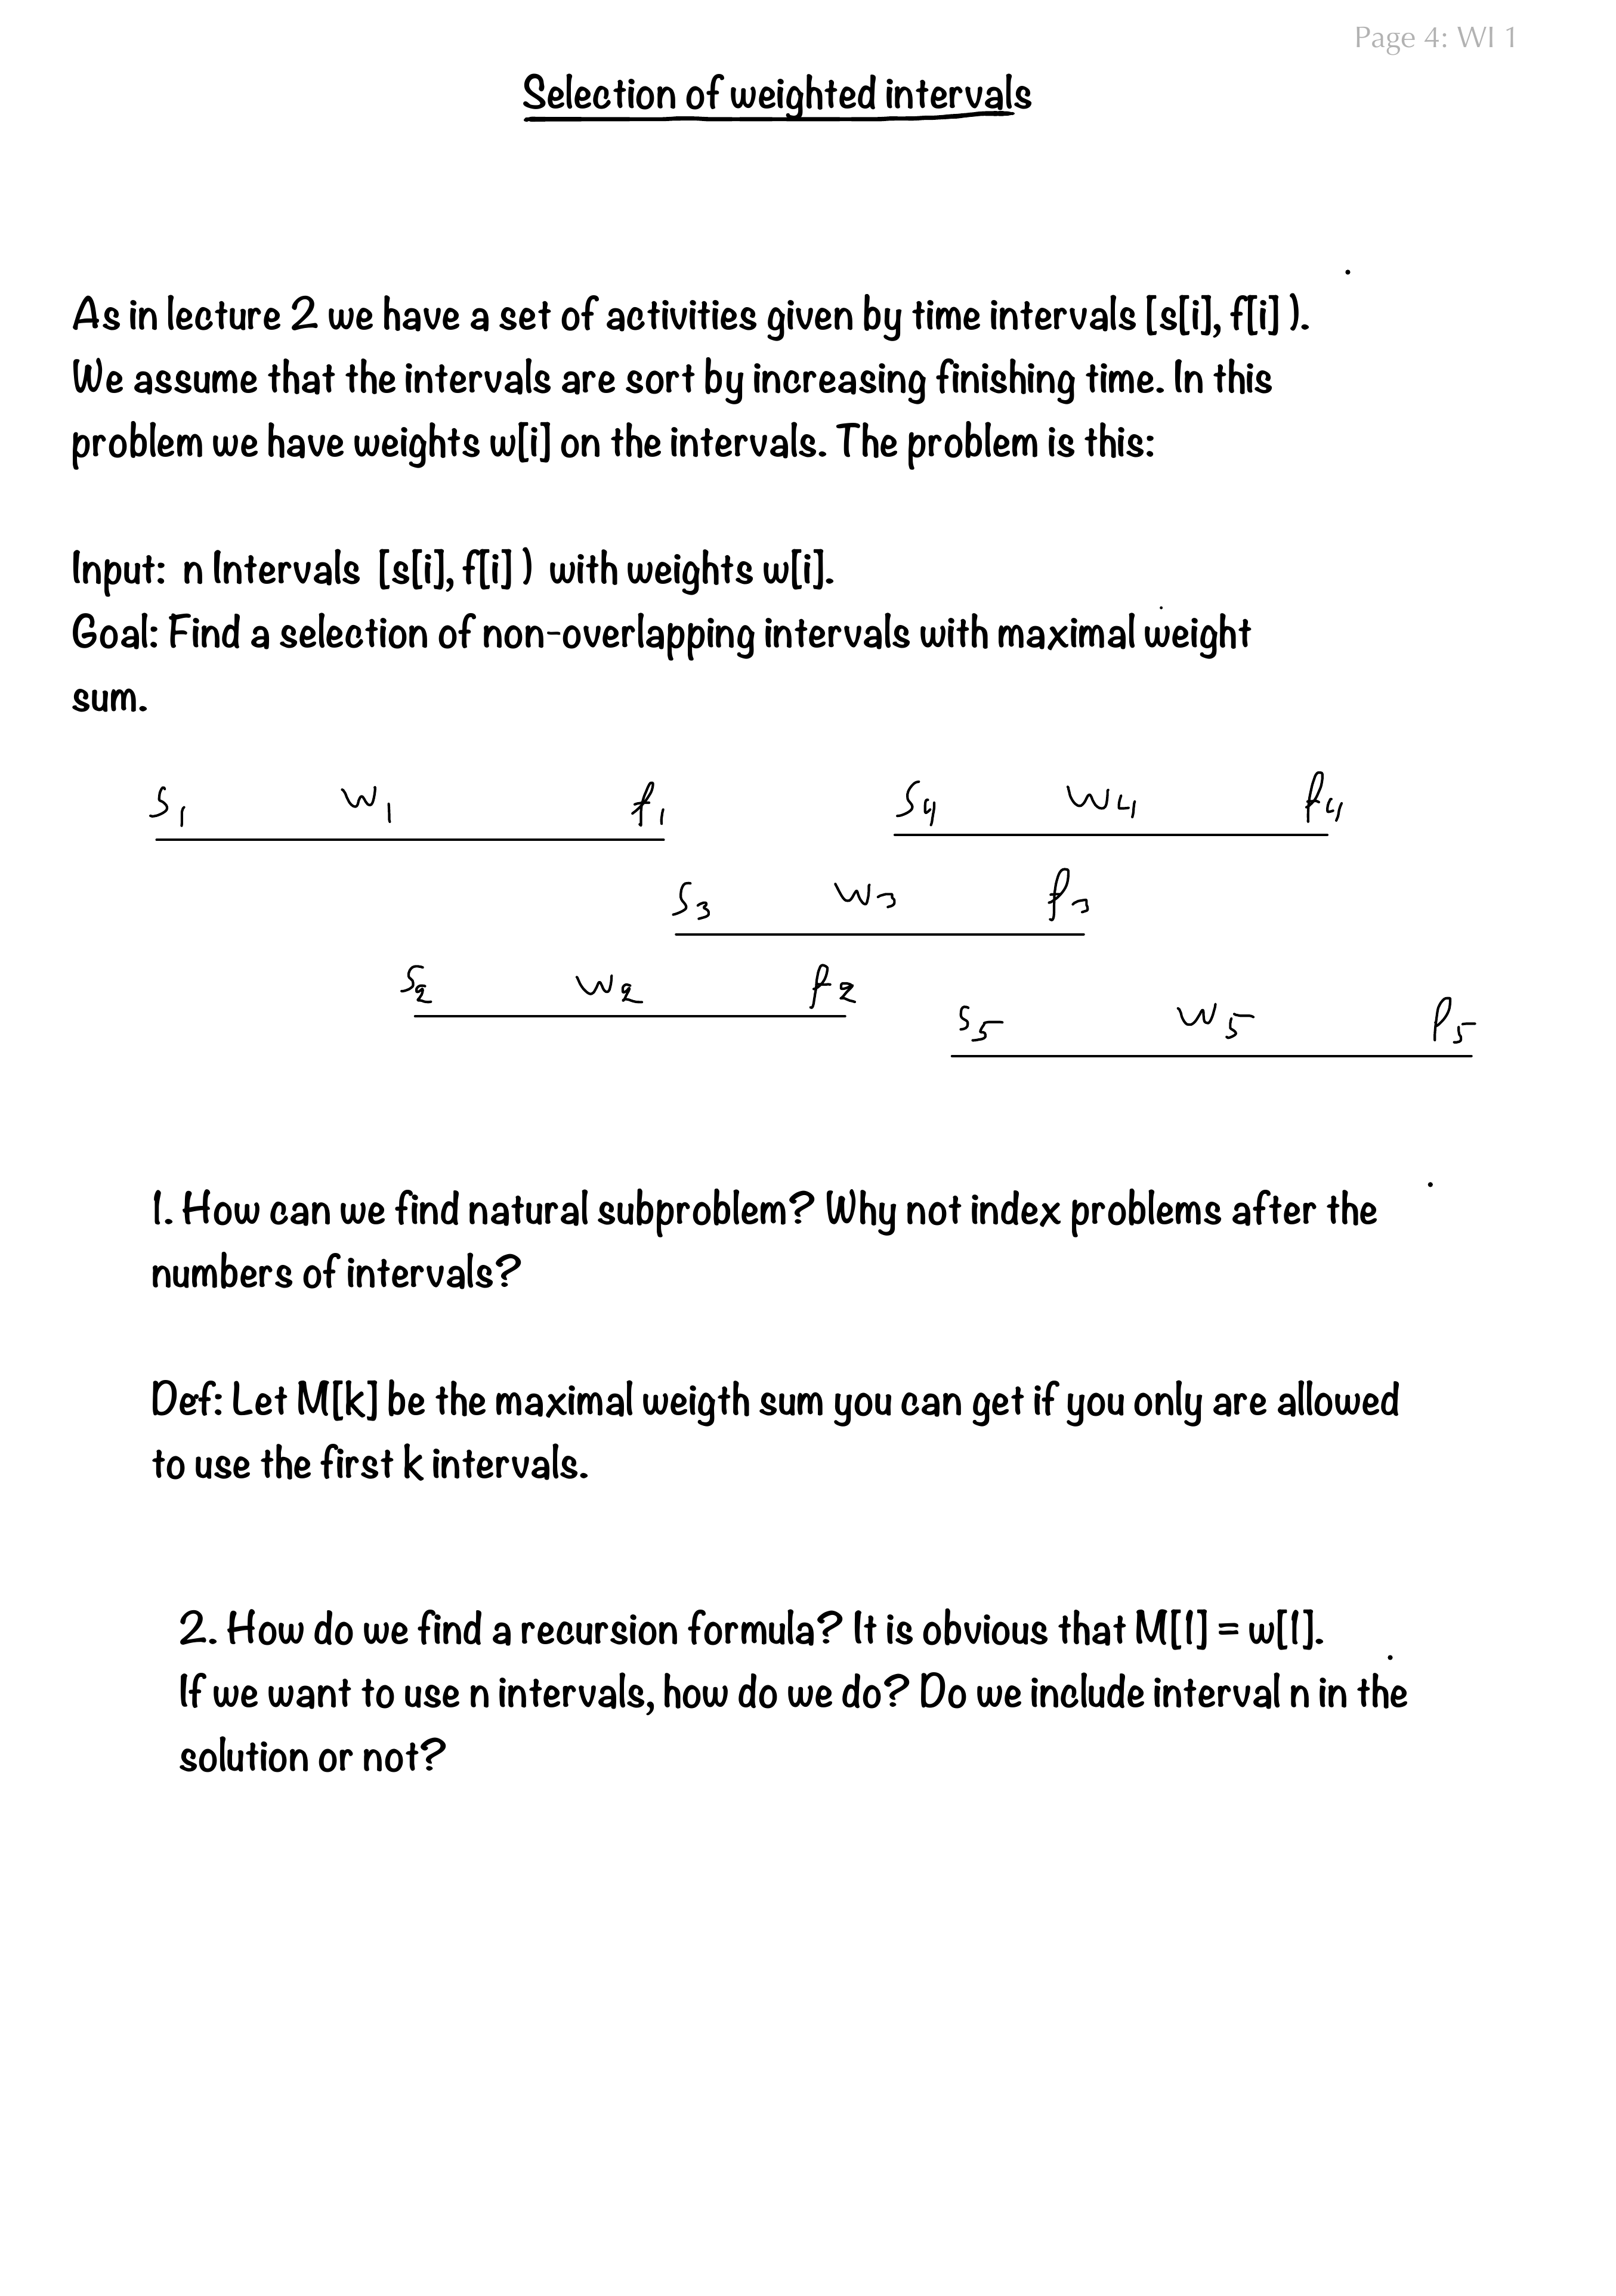 Page 4: WI 1
Selection of weighted intervals
As in lecture 2 we have a set of activities given by time intervals [s[i], f[i] ).
We assume that the intervals are sort by increasing finishing time. In this
problem we have weights w[i] on the intervals. The problem is this:
Input: n Intervals [s[i], f[i] ) with weights w[i].
Goal: Find a selection of non-overlapping intervals with maximal weight
sum.
s1 w1 f1 s4 w4 f4
s3 w3 f3
s2 w2 f2
s5 w5 f5
1. How can we find natural subproblem? Why not index problems after the
numbers of intervals?
Def: Let M[k] be the maximal weigth sum you can get if you only are allowed
to use the first k intervals.
2. How do we find a recursion formula? It is obvious that M[1] = w[1].
If we want to use n intervals, how do we do? Do we include interval n in the
solution or not?